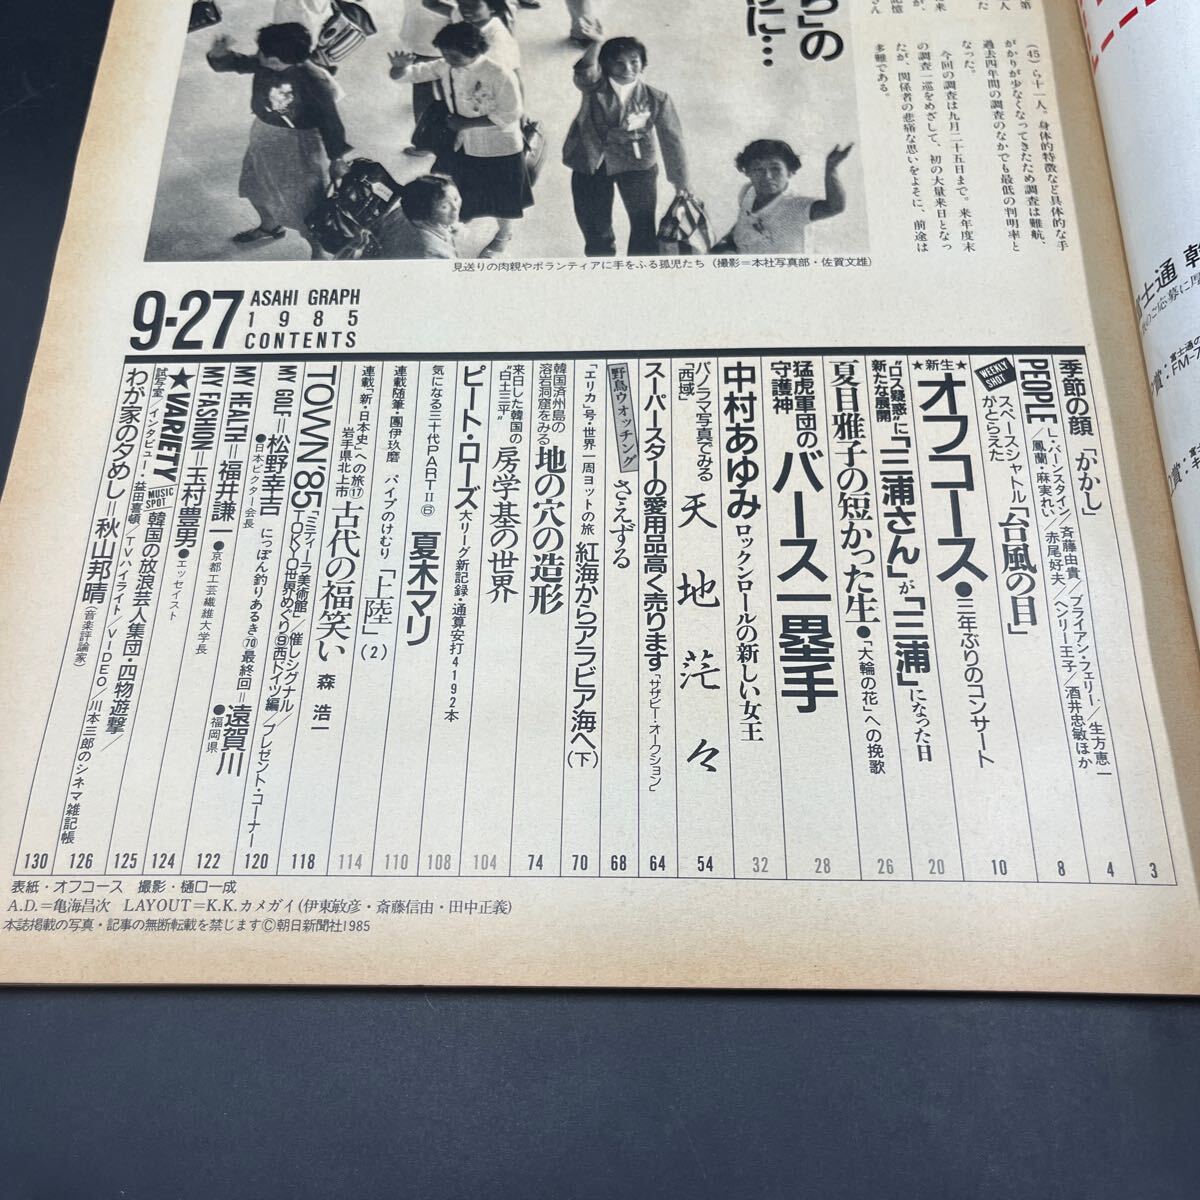 ら」の
に…
(45)ら十一人。身体的特徴など具体的な手
がかりが少なくなってきたため調査は難航、
過去四年間の調査のなかでも最低の判明率と
なった。
今回の調査は九月二十五日まで。来年度末
の調査一巡をめざして、初の大量来日となっ
たが、関係者の悲痛な思いをよそに、前途は
多難である。
見送りの肉親やボランティアに手をふる孤児たち(撮影=本社写真部・佐賀文雄)
9・27 ASAHI GRAPH
1985
CONTENTS
季節の顔「かかし」 3
PEOPLE/L・バーンスタイン/斉藤由貴/ブライアン・フェリー/生方恵一
/鳳蘭・麻実れい/赤尾好夫/ヘンリー王子/酒井忠敏ほか 4
WEEKLY SHOT
スペースシャトル
かとらえた「台風の日」 8
★新生★オフコース●三年ぶりのコンサート 10
“ロス疑惑”に
新たな展開「三浦さん」が「三浦」になった日 20
夏目雅子の短かった生●「大輪の花」への挽歌 26
猛虎軍団の
守護神 バース一塁手 28
中村あゆみ ロックンロールの新しい女王 32
パノラマ写真でみる
「西域」 天地茫々 54
スーパースターの愛用品高く売ります「サザビー・オークション」 64
野鳥ウォッチング さえずる 68
「エリカ」号・世界一周ヨットの旅 紅海からアラビア海へ(下) 70
韓国済州島の
溶岩洞窟をみる 地の穴の造形 74
来日した韓国の
“白土三平” 房学基の世界
ピート・ローズ 大リーグ新記録・通算安打4192本 104
気になる三十代PARTⅡ⑥ 夏木マリ 108
連載随筆・團伊玖磨 パイプのけむり「上陸」(2) 110
連載「新・日本史」への旅⑰
岩手県北上市 古代の福笑い 森 浩一 114
TOWN'85「ミティーラ美術館」/催しシグナル/
TOKYO世界めぐり⑨西ドイツ編/プレゼント・コーナー 118
MY GOLF=松野幸吉●日本ビクター会長 にっぽん釣りあるき⑦⓪最終回=遠賀川●福岡県 120
MY HEALTH=福井謙一●京都工芸繊維大学長 122
MY FASHION=玉村豊男●エッセイスト
★VARIETY MUSIC SPOT 韓国の放浪芸人集団・四物遊撃/ 124
試写室 インタビュー・益田喜頓/TVハイライト/VIDEO/川本三郎のシネマ雑記帳 125
わが家の夕めし=秋山邦晴(音楽評論家) 126
130
表紙・オフコース 撮影・樋口一成
A.D.=亀海昌次 LAYOUT=K.K.カメガイ(伊東敏彦・斎藤信由・田中正義)
本誌掲載の写真・記事の無断転載を禁じますⒸ朝日新聞社1985
士通